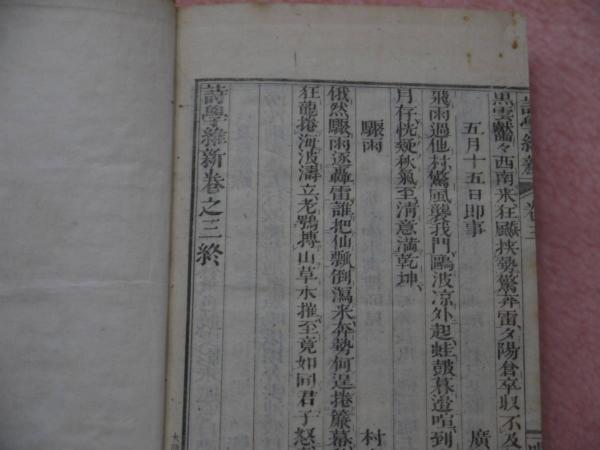 黒雲𮥼々西南来狂飇挟勢驚奔雷夕陽倉卒収不及
五月十五日即事
廣
飛雨過他村驚風襲我門鷗波凉外起蛙皷暮邉喧到
月存恍疑秋氣至淸意満乾坤
驟雨
村
俄然驟雨逐轟雷誰把仙瓢倒瀉来奔勢何逞捲簾幕
狂龍捲海波濤立老鶚搏山草木摧至竟如同君子怒
詩學維新巻之三終
詩學維新
巻三